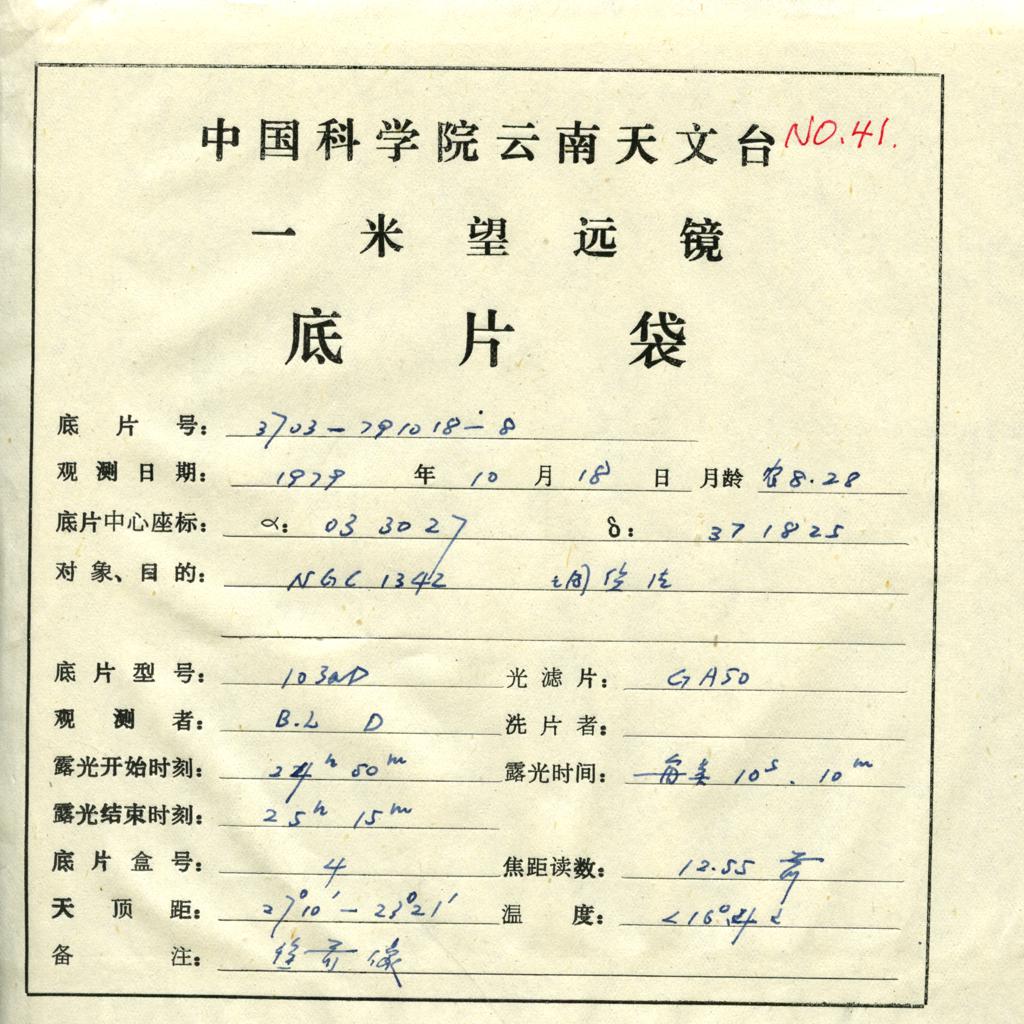 中国科学院云南天文台 NO.41.
一米望远镜
底片袋
底片号: 3703-791018-8
观测日期: 1979 年 10 月 18 日 月龄 农8.28
底片中心座标: α: 03 30 27 δ: 37 18 25
对象、目的: NGC 1342
底片型号: 103aD 光滤片: GA50
观测者: B.L D 洗片者:
露光开始时刻: 24ʰ 50ᵐ 露光时间: 10ˢ. 10ᵐ
露光结束时刻: 25ʰ 15ᵐ
底片盒号: 4 焦距读数: 12.55
天顶距: 27°10′-23°21′ 温度:
备注: